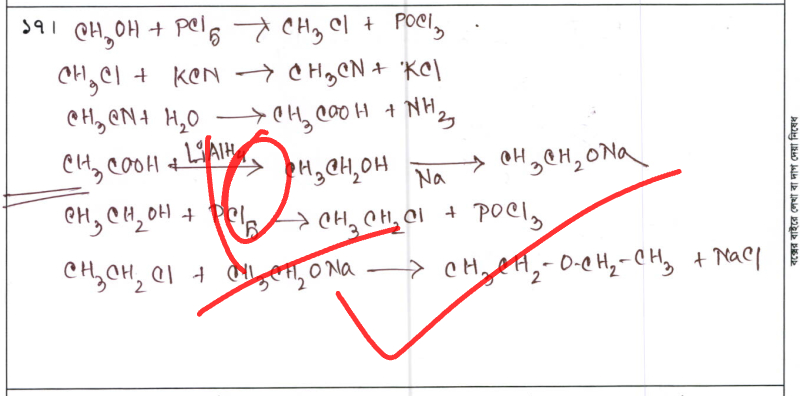 ১৭। CH₃OH + PCl₅ → CH₃Cl + POCl₃
CH₃Cl + KCN → CH₃CN + KCl
CH₃CN + H₂O → CH₃COOH + NH₃
CH₃COOH + LiAlH₄ → CH₃CH₂OH Na → CH₃CH₂ONa
CH₃CH₂OH + PCl₅ → CH₃CH₂Cl + POCl₃
CH₃CH₂Cl + CH₃CH₂ONa → CH₃CH₂-O-CH₂-CH₃ + NaCl
বক্সের বাইরে লেখা বা দাগ দেয়া নিষেধ